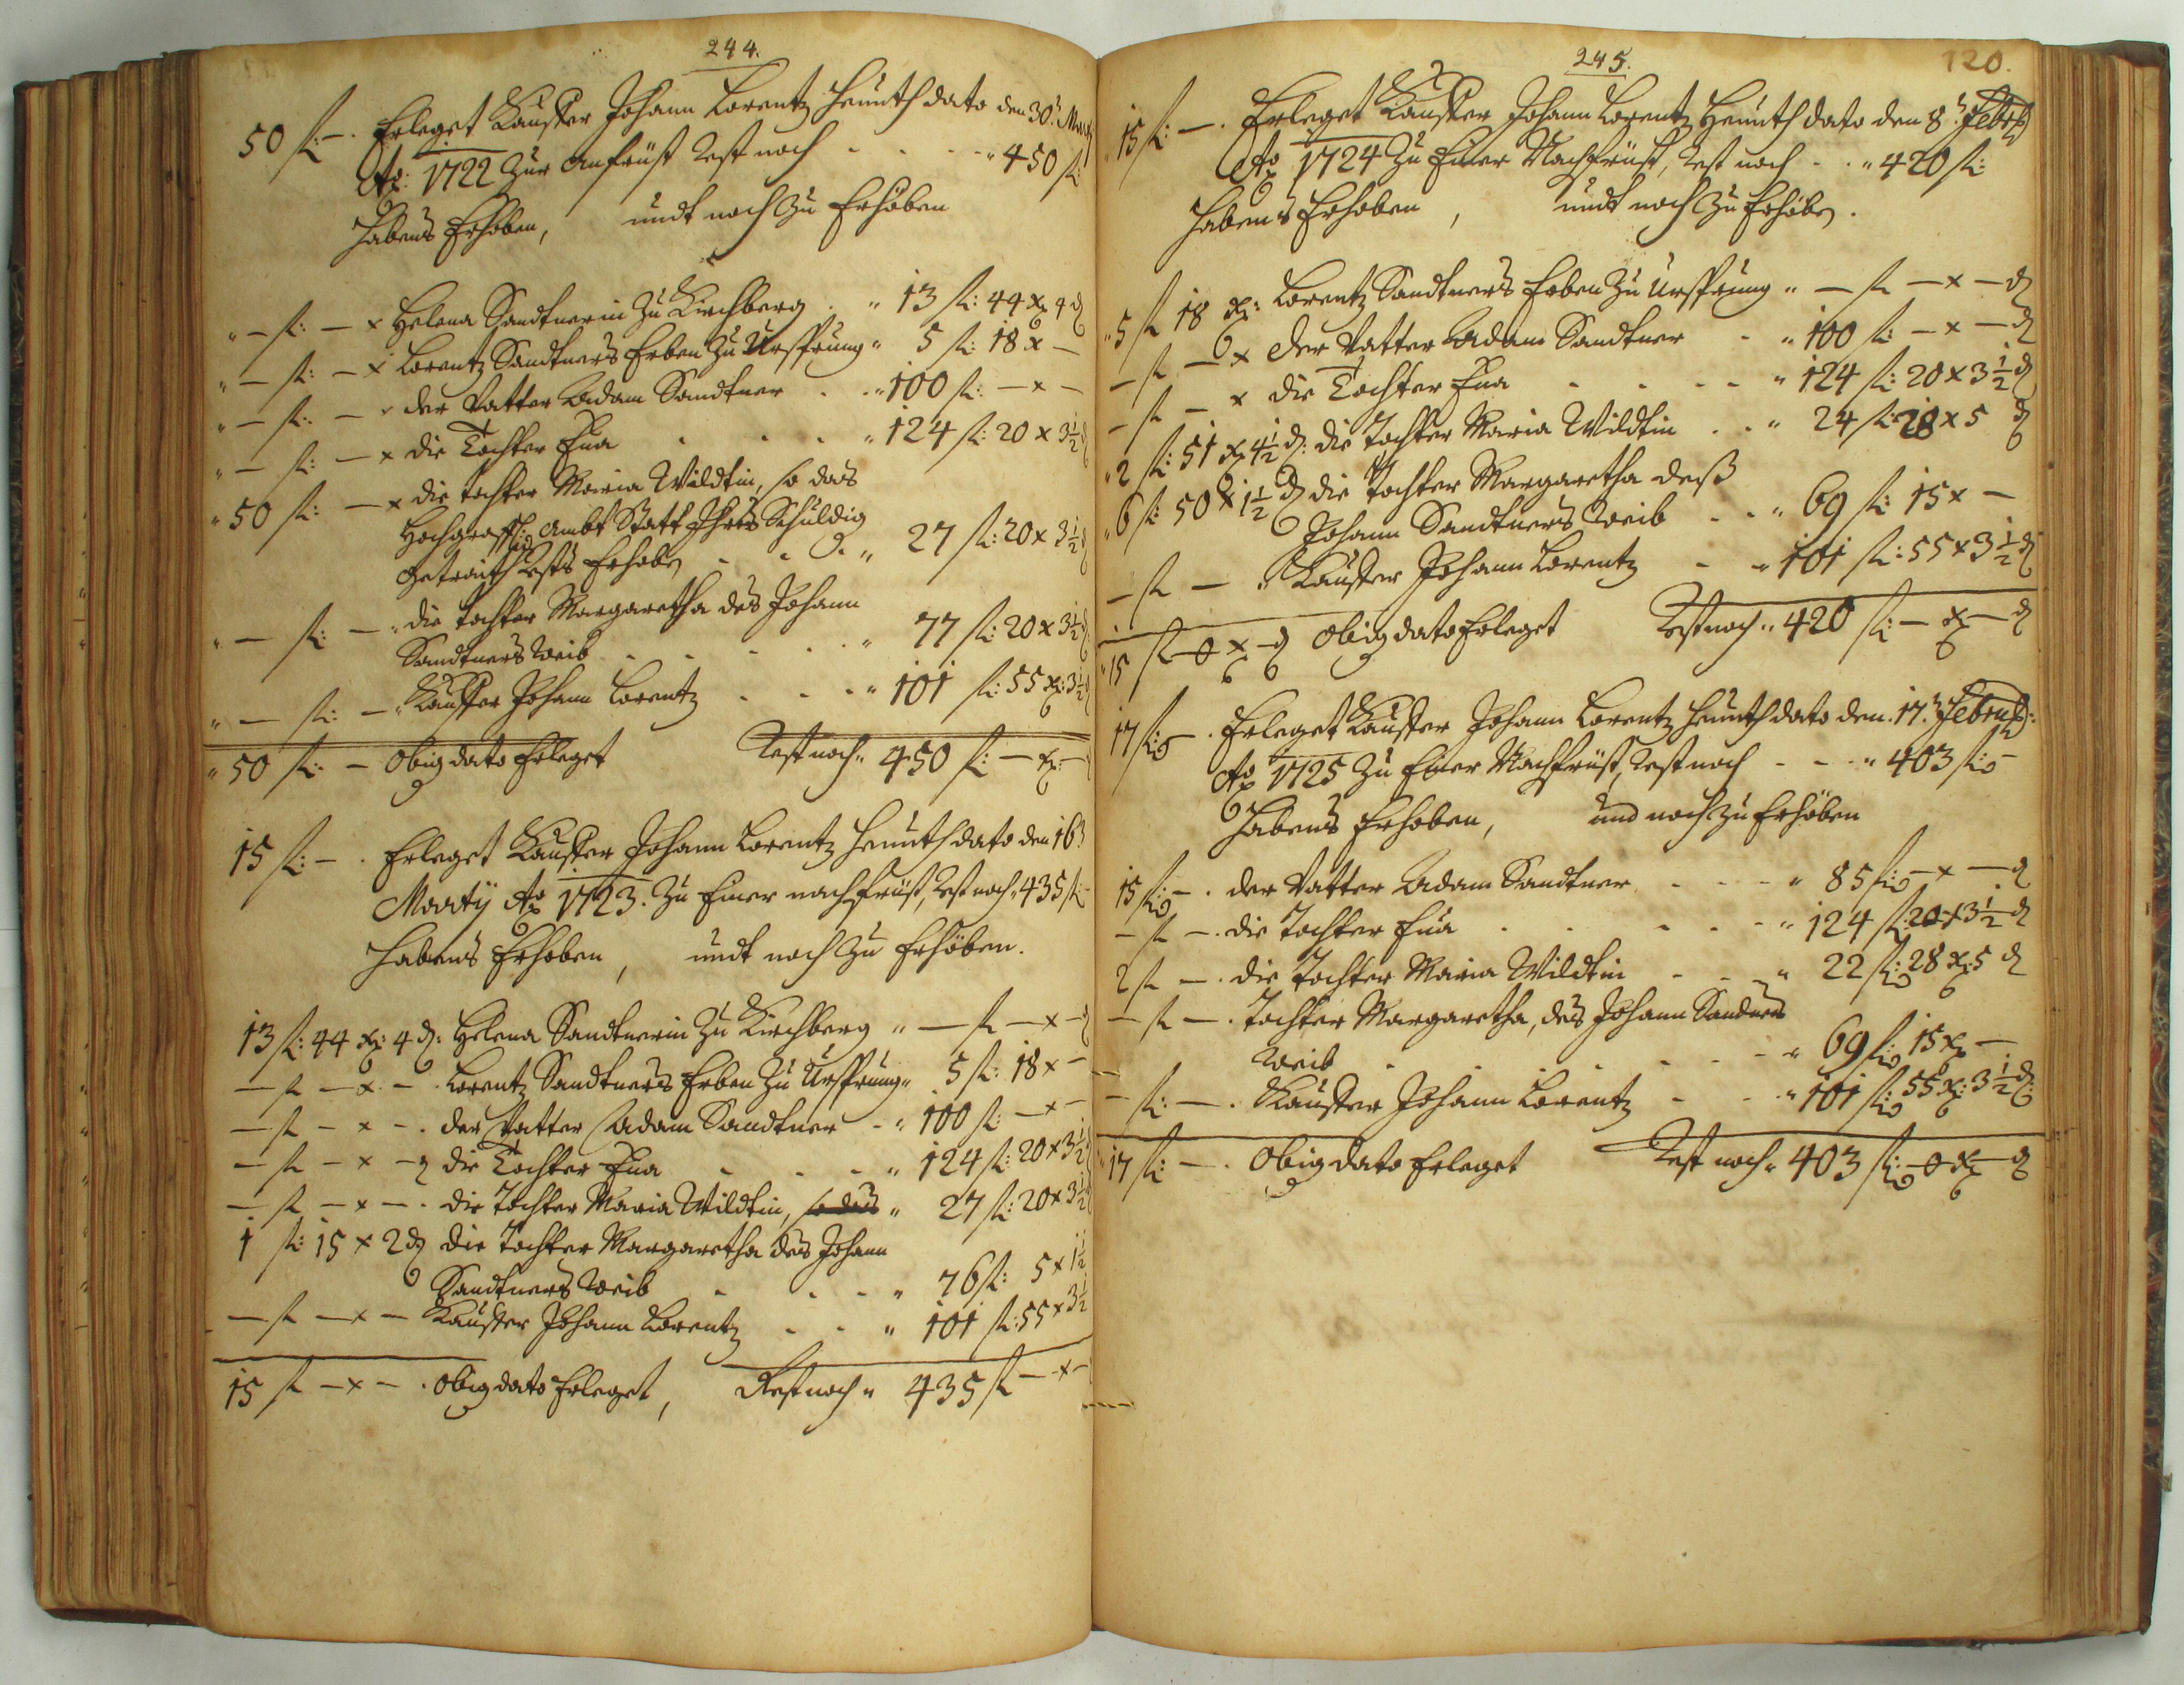 244.
50 fl: — . Erleget Kauffer Johann Lorentz Heüuth dato den 30.t
Ao: 1722 Zur anfrüst Rest noch - - - - " 450 fl:
Habens Erhoben, undt noch Zu Erhöben
" — fl: — x Helena Sandtnerin Zu Kirchberg . " 13 fl: 44 x 4 d
" — fl: — x Lorentz Sandtners Erben Zu Ursprung " 5 fl: 18 x —
" — fl: — x der Vatter Adam Sandtner . . " 100 fl: — x —
" — fl: — x die Tochter Eua . . . . " 124 fl: 20 x 3½ d
" 50 fl: — x die tochter Maria Wildtin, so das
Hochgräffl: Ambt Statt Ihres Schuldig
getraith Rests Erhoben - - - " 27 fl: 20 x 3½ d
" — fl: — " die tochter Margaretha des Johann
Sandtners Weib - - - - - " 77 fl: 20 x 3½ d
" — fl: — " Kauffer Johann Lorentz - - - " 101 fl: 55 x: 3½ d
" 50 fl: — Obig dato Erleget Rest noch " 450 fl: — x: —
15 fl: — . Erleget Kauffer Johann Lorentz Heüuth dato den 16t
Marty Ao 1723. Zu Einer nachfrüst, Rest noch " 435 fl: —
Habens Erhoben, undt noch Zu Erhöben.
13 fl: 44 x: 4 d: Helena Sandtnerin Zu Kirchberg " — fl — x — d
— fl — x — . Lorentz Sandtners Erben Zu Ursprung " 5 fl: 18 x —
— fl — x — . der Vatter Adam Sandtner - " 100 fl: — x —
— fl — x — d die Tochter Eua - - - " 124 fl: 20 x 3½
— fl — x — . die tochter Maria Wildtin, so das " 27 fl: 20 x 3½
1 fl: 15 x 2 d die Tochter Margaretha des Johann
Sandtners Weib - - - " 76 fl: 5 x 1½
— fl — x — Kauffer Johann Lorentz - - " 101 fl: 55 x 3½
15 fl — x — . Obig dato Erleget, Rest noch " 435 fl — x —
245.
120.
" 15 fl: — . Erleget Kauffer Johann Lorentz Heüuth dato den 8.t Febr:
Ao 1724 Zu Einer Nachfrüst, Rest noch - . " 420 fl:
Habens Erhoben, undt noch Zu Erhöben.
" 5 fl 18 x: Lorentz Sandtners Erben Zu Ursprung " — fl — x — d
— fl — x der Vatter Adam Sandtner - " 100 fl: — x — d
— fl — x die Tochter Eua - - - - " 124 fl: 20 x 3½ d
" 2 fl: 51 x 4½ d: die Tochter Maria Wildtin . . " 24 fl: 28 x 5 d
" 6 fl: 50 x 1½ d die Tochter Margaretha deß
Johann Sandtners Weib - - " 69 fl: 15 x —
— fl — . Kauffer Johann Lorentz - " 101 fl: 55 x 3½ d
" 15 fl — o x — d Obig dato Erleget Rest noch " 420 fl: — x — d
17 fl: — . Erleget Kauffer Johann Lorentz Heüuth dato den 17.t Febru:
Ao 1725 Zu Einer Nachfrüst, Rest noch - - " 403 fl: —
Habens Erhoben, und noch Zu Erhöben
15 fl: — . der Vatter Adam Sandtner - - - " 85 fl: — x — d
— fl — . die Tochter Eua . . - - - " 124 fl: 20 x 3½ d
2 fl — . die Tochter Maria Wildtin - - " 22 fl: 28 x: 5 d
— fl — . Tochter Margaretha, des Johann Sandners
Weib - - - - - " 69 fl: 15 x —
— fl: — . Kauffer Johann Lorentz - - " 101 fl: 55 x: 3½ d:
" 17 fl: — . Obig dato Erleget Rest noch " 403 fl: — o x — d